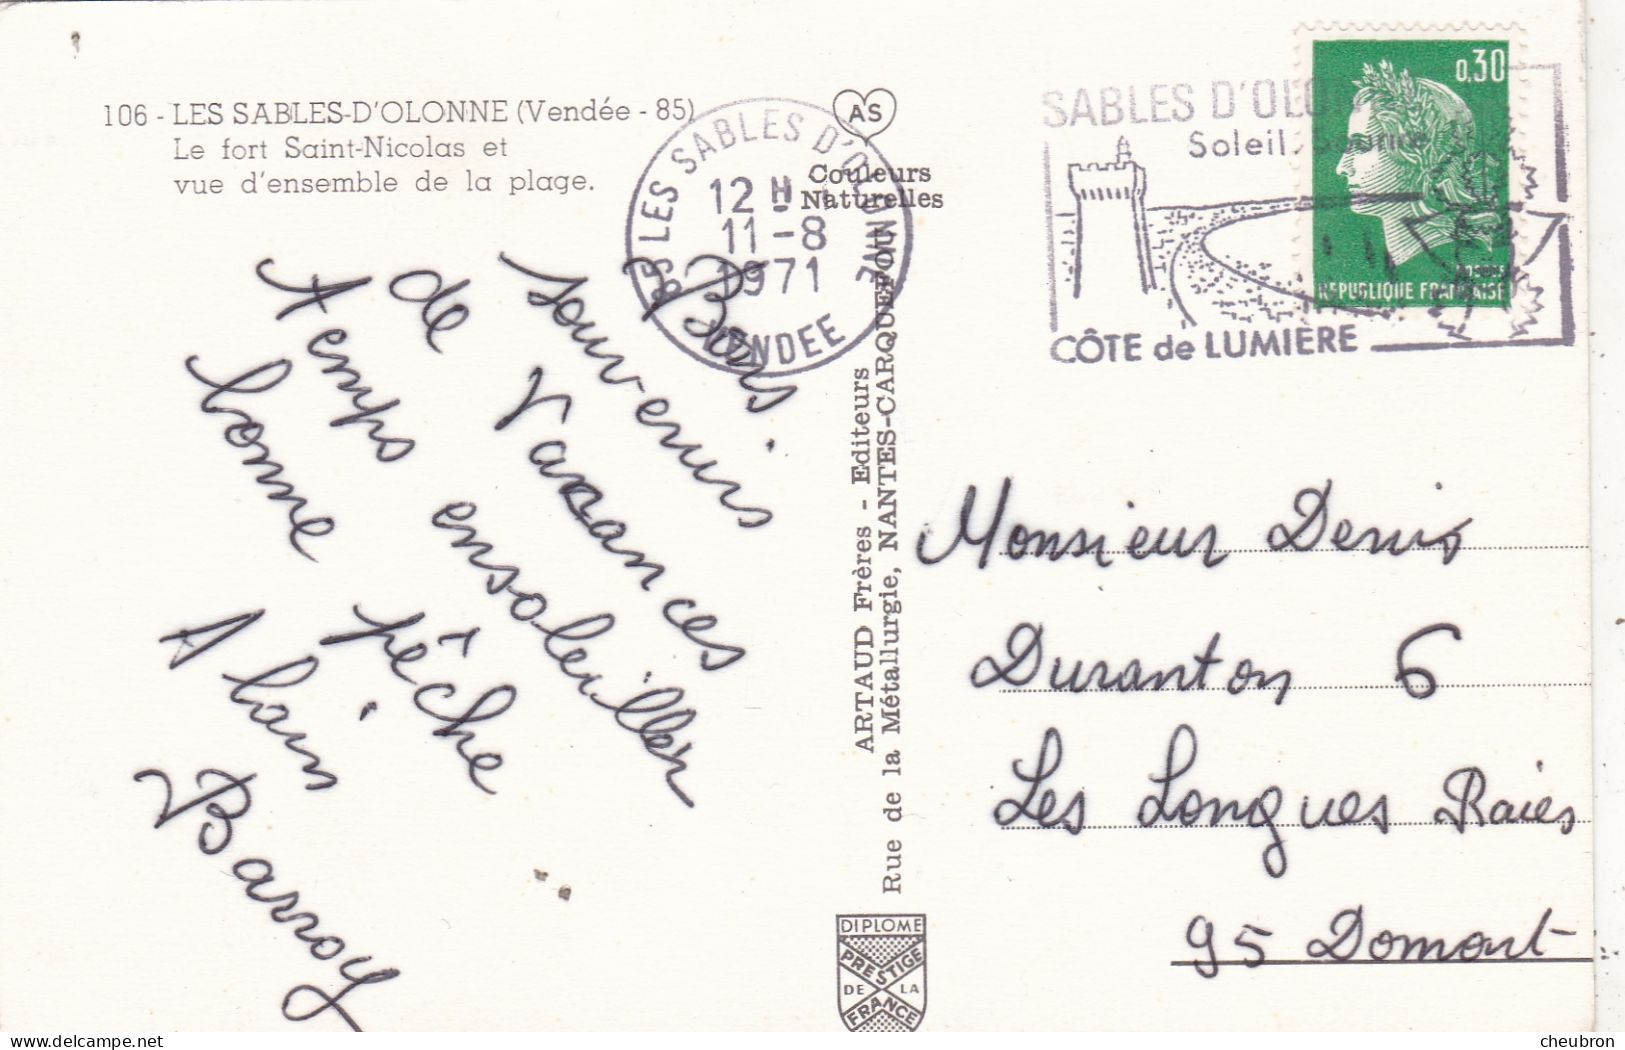 106 - LES SABLES-D'OLONNE (Vendée - 85)
Le fort Saint-Nicolas et
vue d'ensemble de la plage.
AS
Couleurs
Naturelles
85 LES SABLES D'OLONNE
12 H
11-8
1971
VENDEE
SABLES D'OLONNE
Soleil,
CÔTE de LUMIÈRE
0,30
REPUBLIQUE FRANÇAISE
Bons
souvenirs
de Vacances
Temps ensoleiller
bonne pêche
Alain
Barroy
ARTAUD Frères - Editeurs
Rue de la Métallurgie, NANTES-CARQUEFOU
DIPLOME
PRESTIGE
DE LA
FRANCE
Monsieur Denis
Duranton 6
Les Longues Raies
95 Domont
delcampe.net
cheubron